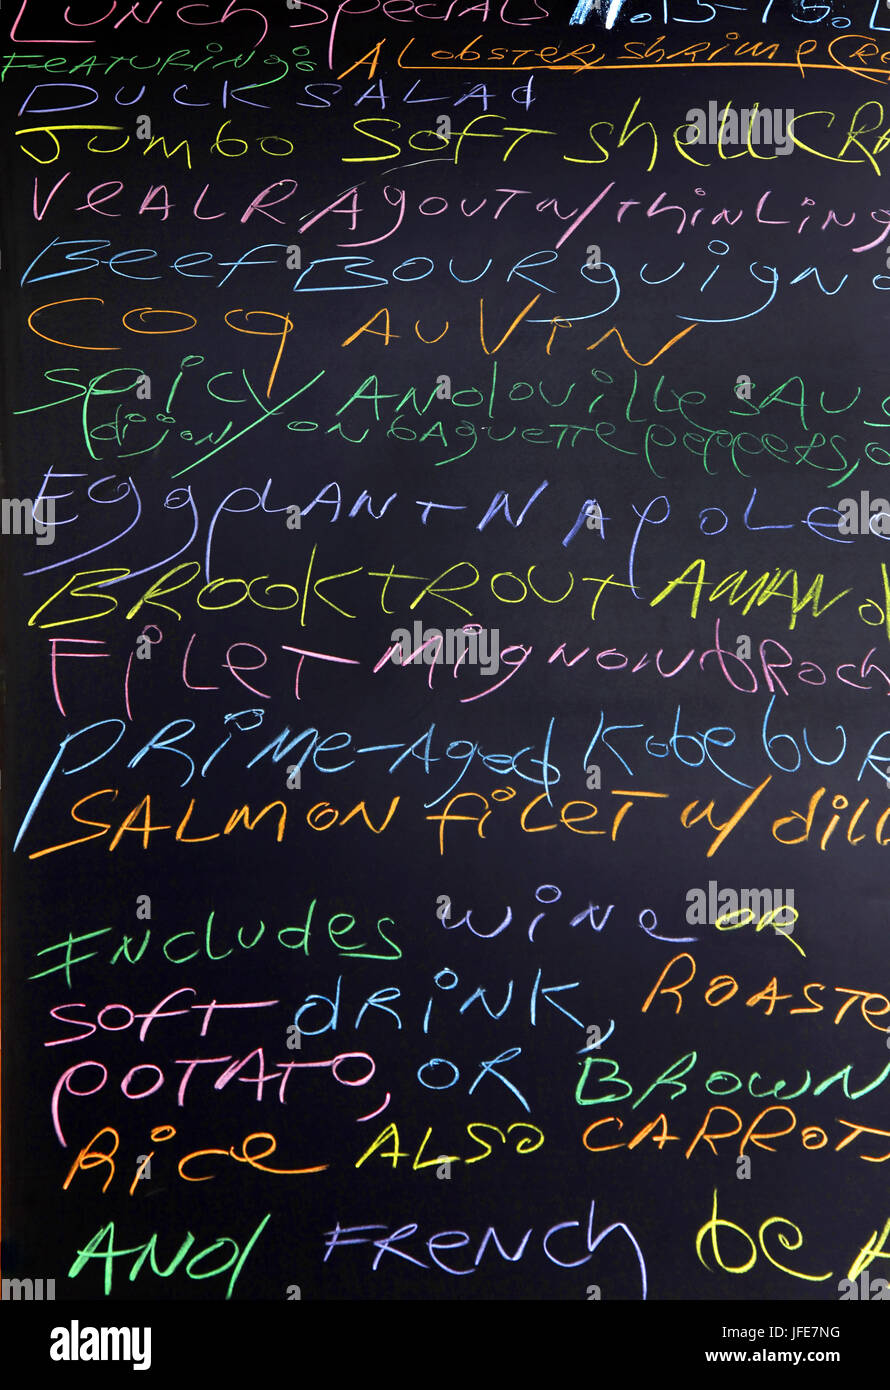 Lunch Specials 11.15-15.
Featuring: A Lobster, Shrimp
Duck Salad
Jumbo Soft Shell CRA
Veal Ragout w/thin Ling
Beef Bourguigno
Coq Au Vin
Spicy Andouille Saus
dijon/on baguette peppers,
Eggplant Napoleo
Brook Trout Amand
Filet Mignon broch
Prime-Aged Kobe bur
Salmon filet w/ dill
Includes wine or
soft drink, Roaste
potato, or Brown
Rice also Carrots
And French bea
alamy
Image ID: JFE7NG
www.alamy.com